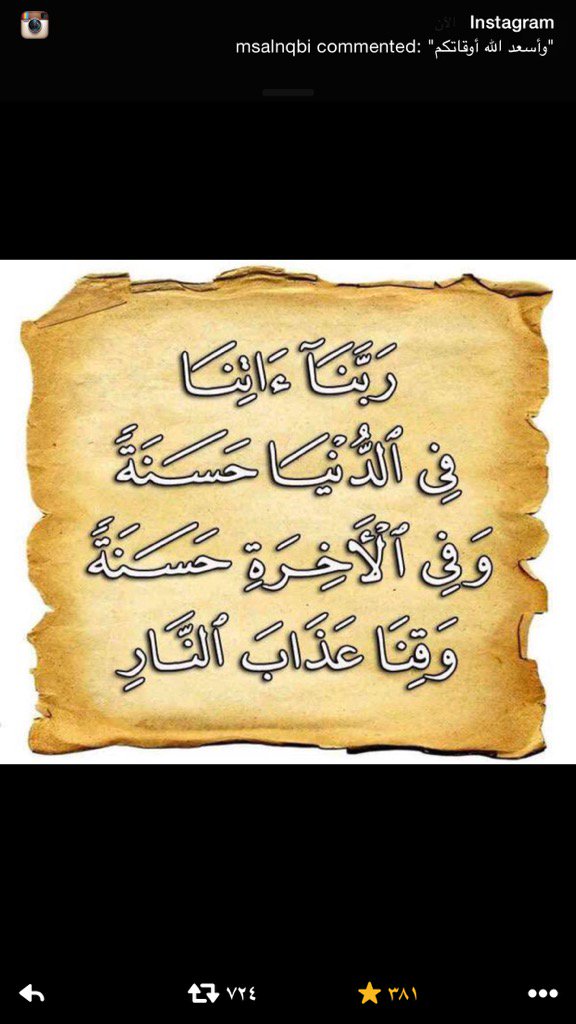 Instagram الآن
msalnqbi commented: "وأسعد الله أوقاتكم"
رَبَّنَآ ءَاتِنَا
فِى ٱلدُّنْيَا حَسَنَةً
وَفِى ٱلْأَخِرَةِ حَسَنَةً
وَقِنَا عَذَابَ ٱلنَّارِ
٧٢٤
٣٨١